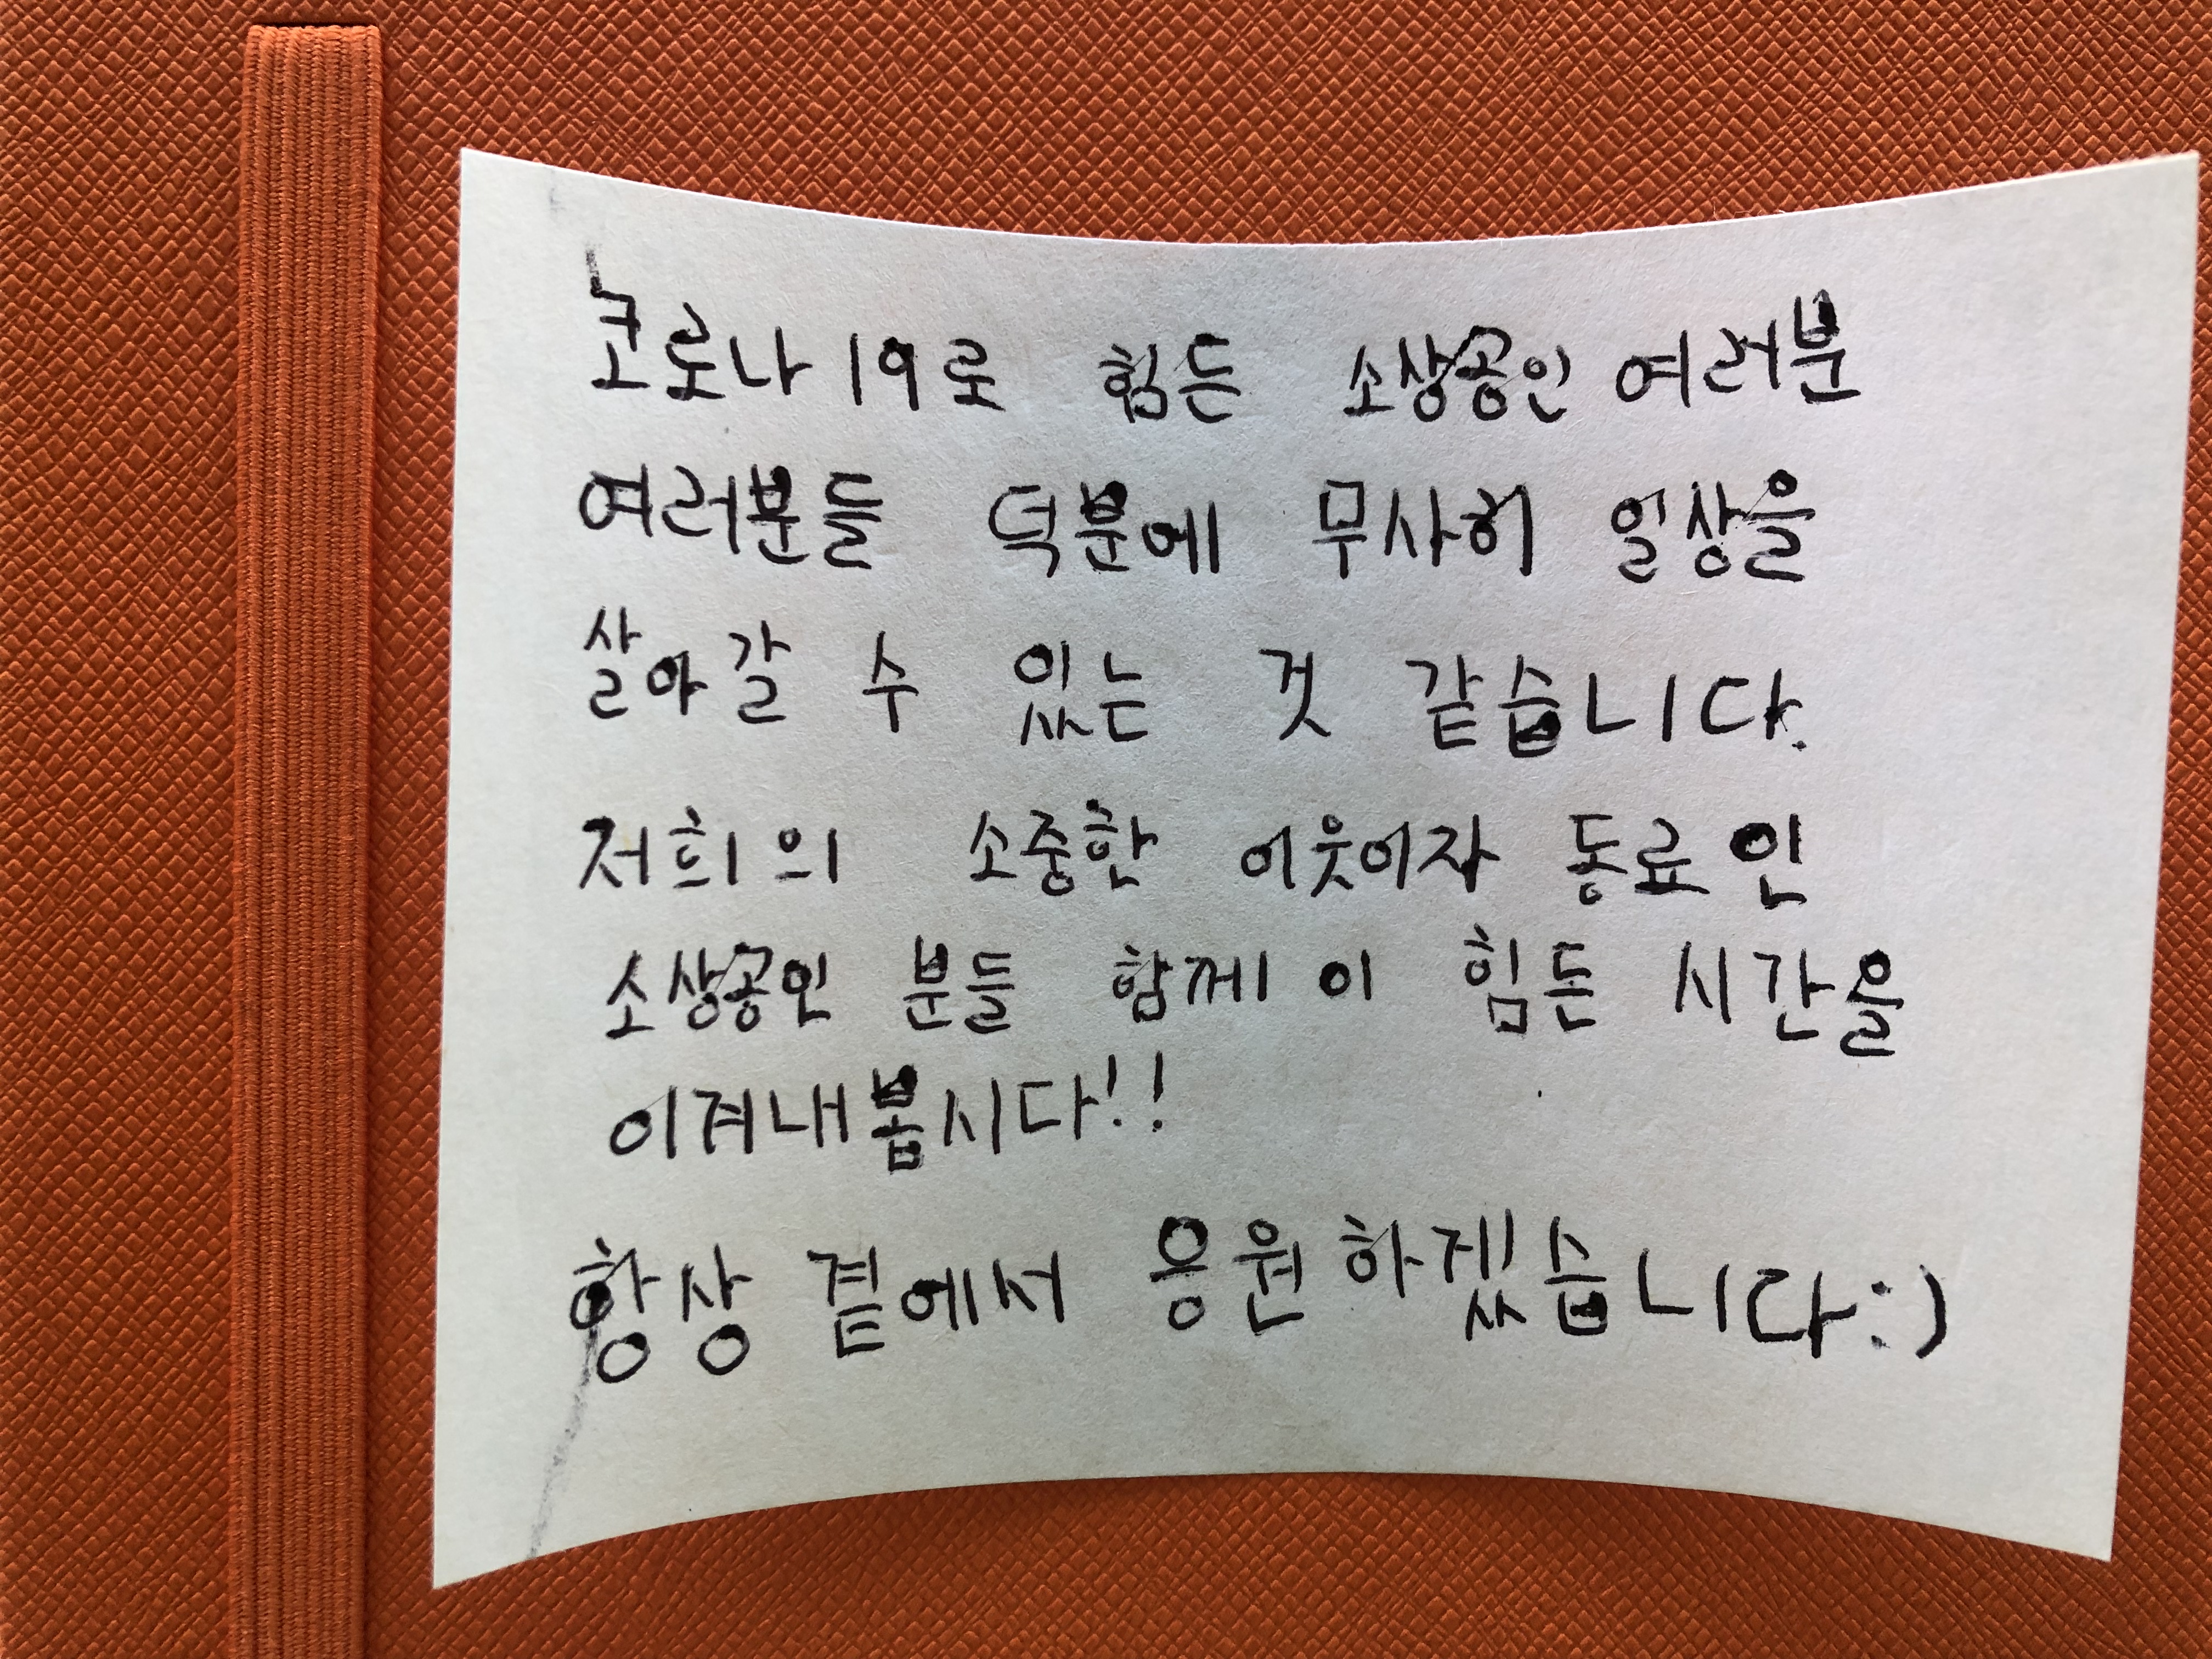 코로나19로 힘든 소상공인 여러분
여러분들 덕분에 무사히 일상을
살아갈 수 있는 것 같습니다.
저희의 소중한 이웃이자 동료인
소상공인 분들 함께 이 힘든 시간을
이겨내봅시다!!
항상 곁에서 응원하겠습니다:)